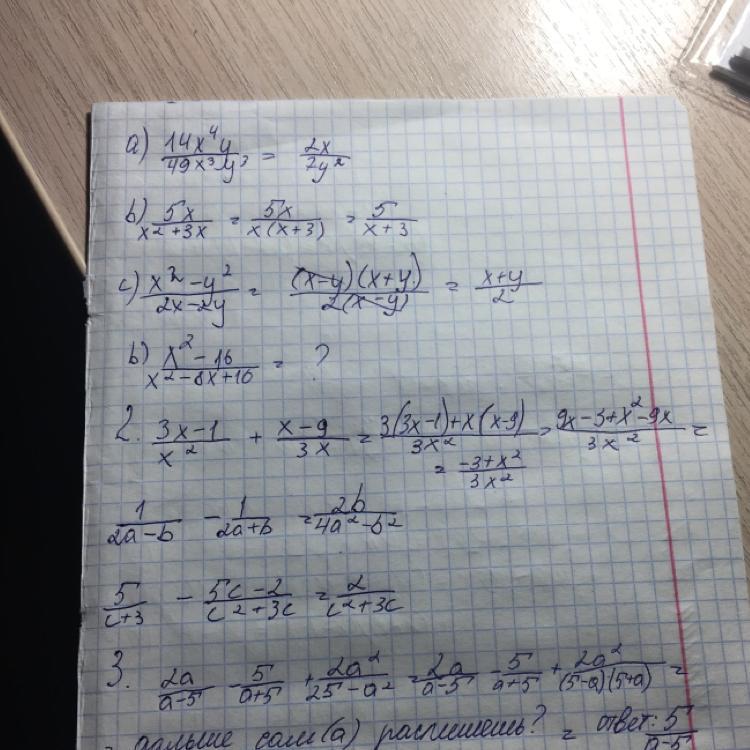 a) 14x⁴y / 49x³y³ = 2x / 7y²
b) 5x / x²+3x = 5x / x(x+3) = 5 / x+3
c) x²-y² / 2x-2y = (x-y)(x+y) / 2(x-y) = x+y / 2
b) x²-16 / x²-8x+16 = ?
2. 3x-1 / x² + x-9 / 3x = 3(3x-1)+x(x-9) / 3x² = 9x-3+x²-9x / 3x² =
= -3+x² / 3x²
1 / 2a-b - 1 / 2a+b = 2b / 4a²-b²
5 / c+3 - 5c-2 / c²+3c = 2 / c²+3c
3. 2a / a-5 - 5 / a+5 + 2a² / 25-a² = 2a / a-5 - 5 / a+5 + 2a² / (5-a)(5+a) =
= дальше сам(а) распишешь? = ответ: 5 / a-5